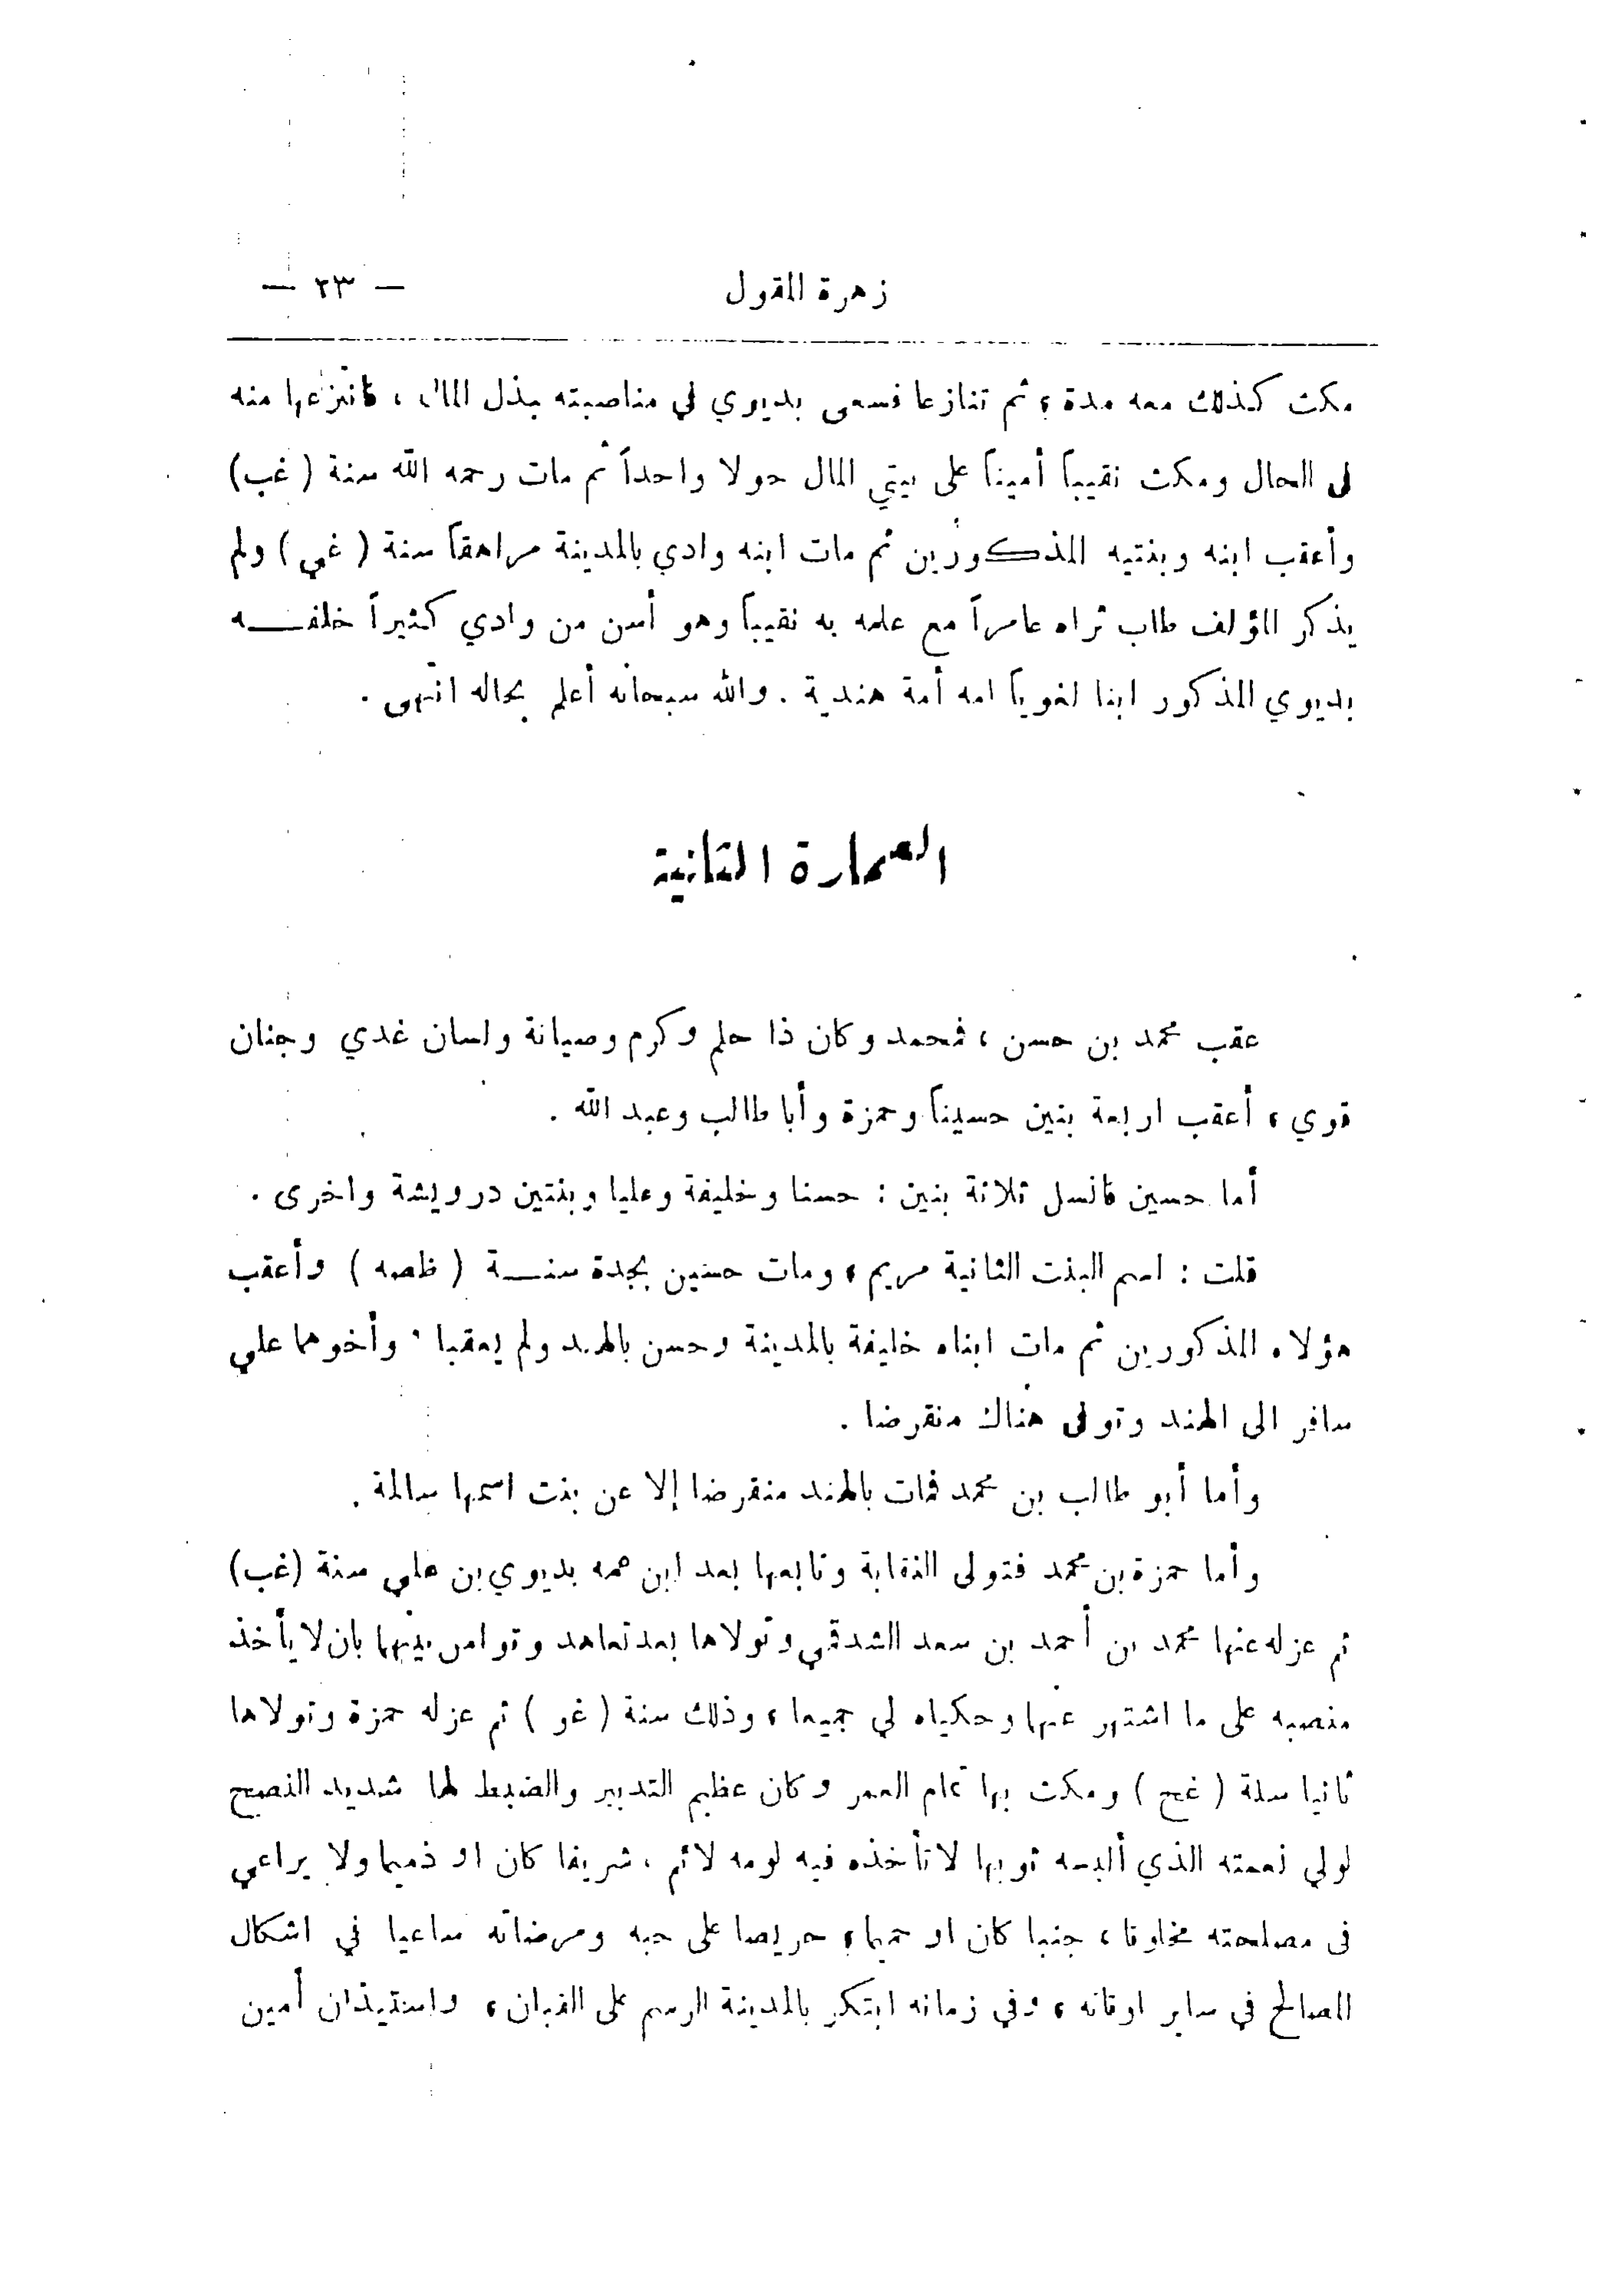 زهرة المقول — ٢٣ —
مكث كذلك معه مدة، ثم تنازعا فسعى بديوي في مناصبته ببذل المال، فانتزعها منه
في الحال ومكث نقيباً أميناً على بيتي المال حولا واحداً ثم مات رحمه الله سنة ( غب )
وأعقب ابنه وبنتيه المذكورين ثم مات ابنه وادي بالمدينة مراهقاً سنة ( غي ) ولم
يذكر المؤلف طاب ثراه عامراً مع علمه به نقيباً وهو أسن من وادي كثيراً خلفه
بديوي المذكور ابنا لغوياً امه أمة هندية . والله سبحانه أعلم بحاله انتهى .
العمارة الثانية
عقب محمد بن حسن، فمحمد وكان ذا حلم وكرم وصيانة ولسان غدي وجنان
قوي، أعقب اربعة بنين حسيناً وحمزة وأبا طالب وعبد الله .
أما حسين فانسل ثلاثة بنين : حسنا وخليفة وعليا وبنتين درويشة واخرى .
قلت : اسم البنت الثانية مريم، ومات حسين بجدة سنة ( ظصه ) وأعقب
هؤلاء المذكورين ثم مات ابناه خليفة بالمدينة وحسن بالهند ولم يعقبا، وأخوهما علي
سافر الى الهند وتوفى هناك منقرضا .
وأما أبو طالب بن محمد فمات بالهند منقرضا إلا عن بنت اسمها سالمة .
وأما حمزة بن محمد فتولى النقابة وتابعها بعد ابن عمه بديوي بن علي سنة ( غب )
ثم عزله عنها محمد بن أحمد بن سعد الشدقمي وتولاها بعد تعاهد وتوامر بينهما بان لا يأخذ
منصبه على ما اشتهر عنهما وحكياه لي جميعا، وذلك سنة ( غو ) ثم عزله حمزة وتولاها
ثانيا سنة ( غح ) ومكث بها تمام العمر وكان عظيم التدبير والضبط لها شديد النصح
لولي نعمته الذي ألبسه ثوبها لا تأخذه فيه لومه لائم، شريفا كان او ذميما ولا يراعي
في مصلحته مخلوقا، جنبا كان او حميما، حريصا على حبه ومرضاته ساعيا في اشكال
المصالح في ساير اوقاته، وفي زمانه ابتكر بالمدينة الرسم على القبان، واستيذان أمين